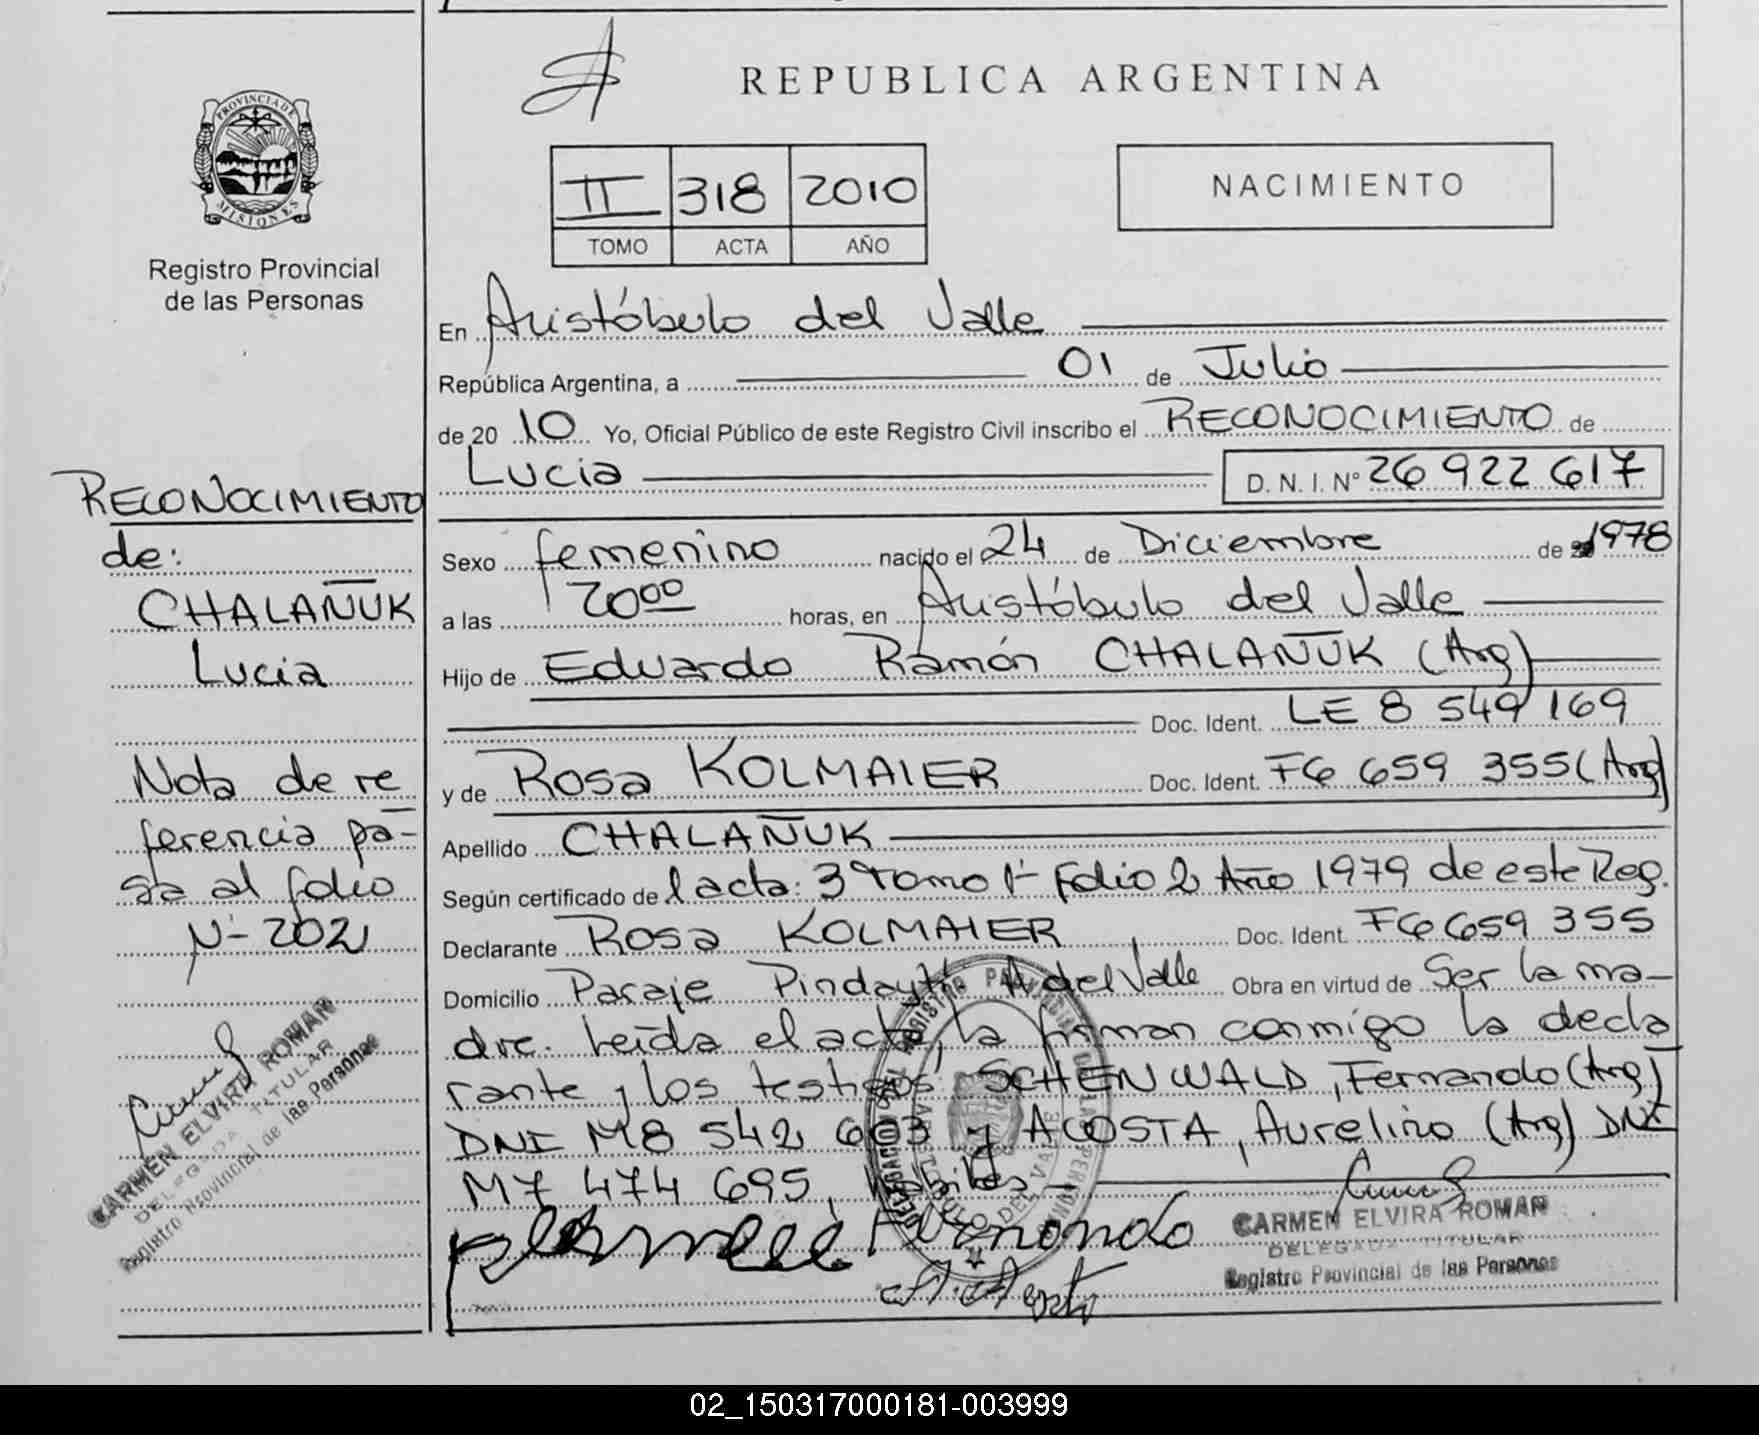 REPUBLICA ARGENTINA
PROVINCIA DE
MISIONES
Registro Provincial
de las Personas
II 318 2010
TOMO ACTA AÑO
NACIMIENTO
En Aristóbulo del Valle
República Argentina, a 01 de Julio
de 20 10 Yo, Oficial Público de este Registro Civil inscribo el RECONOCIMIENTO de
Lucia D. N. I. Nº 26 922 617
Sexo femenino nacido el 24 de Diciembre de 1978
a las 2000 horas, en Aristóbulo del Valle
Hijo de Eduardo Ramón CHALAÑUK (Arg)
Doc. Ident. LE 8 549 169
y de Rosa KOLMAIER Doc. Ident. F6 659 355 (Arg)
Apellido CHALAÑUK
Según certificado de l acta: 3 Tomo 1º Folio 2 Año 1979 de este Reg.
Declarante Rosa KOLMAIER, Doc. Ident. F6 659 355
Domicilio Paraje Pindaytí A del Valle Obra en virtud de Ser la ma-
dre. Leída el acta, la firman conmigo la decla
rante y los testigos: SCHENWALD, Fernando (Arg)
DNI M8 542 603 y ACOSTA, Aurelino (Arg) DNI
M7 474 695, hábiles
Fernando
A. Acosta
CARMEN ELVIRA ROMAN
DELEGADA TITULAR
Registro Provincial de las Personas
RECONOCIMIENTO
de:
CHALAÑUK
Lucia
Nota de re
ferencia pa-
sa al folio
Nº 202
CARMEN ELVIRA ROMAN
DELEGADA TITULAR
Registro Provincial de las Personas
02_150317000181-003999